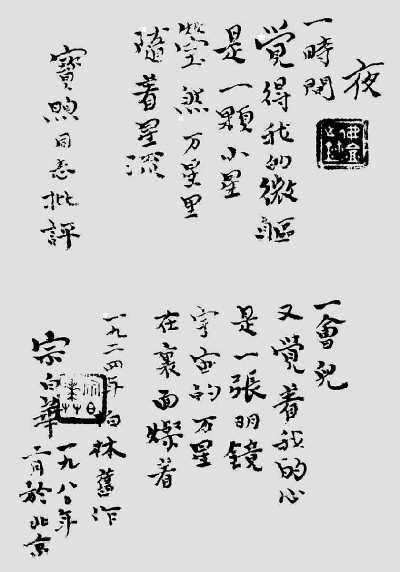 夜
一時間
覺得我的微軀
是一顆小星
瑩然万星里
隨着星流
一會兒
又覺着我的心
是一張明鏡
宇宙的万星
在裏面燦着
寶煦同志批評
一九二四年白林舊作
宗白華
一九八〇年
月於北京